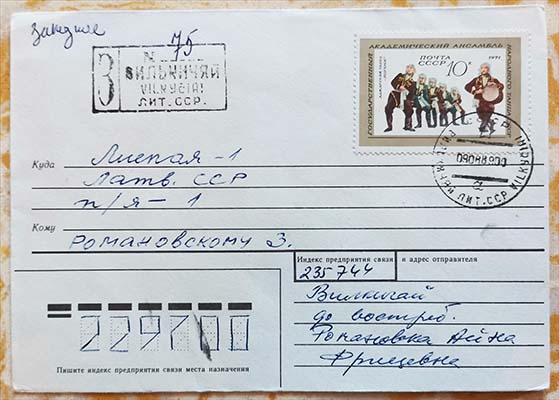 Заказное
№ 75
З
ВИЛЬКИЧЯЙ
VILKYČIAI
ЛИТ. ССР.
ГОСУДАРСТВЕННЫЙ
АКАДЕМИЧЕСКИЙ АНСАМБЛЬ
НАРОДНОГО ТАНЦА СССР
ПОЧТА
СССР
10к
1971
ЛИТ. ССР VILKYČIAI
Куда
Лиепая-1
Латв. ССР
п/я-1
Кому
Романовскому З.
Индекс предприятия связи и адрес отправителя
235744
Вилкичай
до востреб.
Романовска Айна
Фрицевна
229700
Пишите индекс предприятия связи места назначения